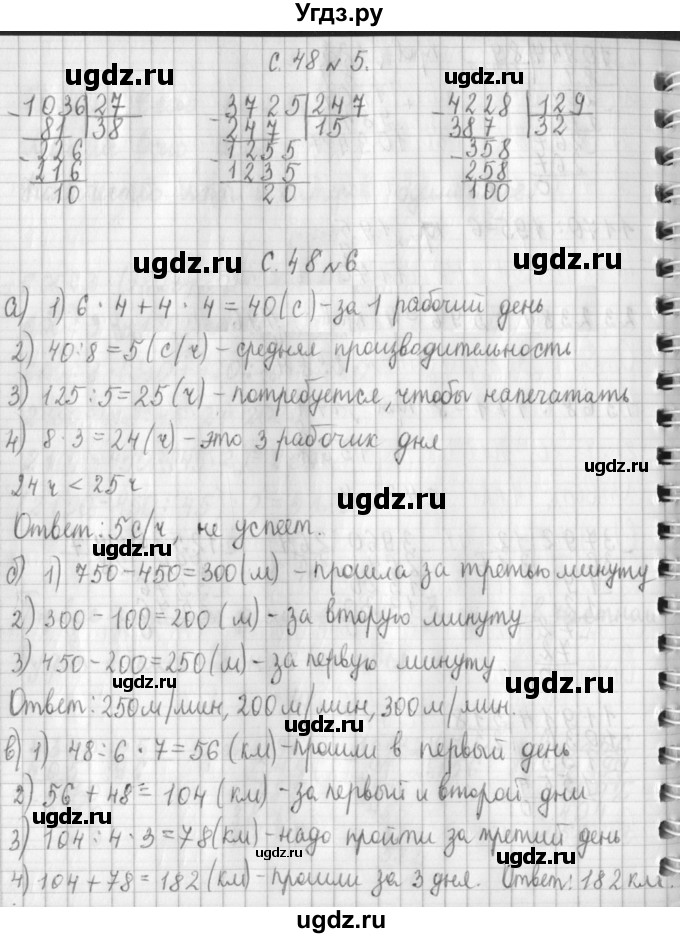 Угдз.ру
с. 48 № 5.
ugdz.ru ugdz.ru
1036 27 3725 247 4228 129
81 38 247 15 387 32
226 1255 358
216 1235 258
10 20 100
ugdz.ru с. 48 № 6 ugdz.ru
а) 1) 6 · 4 + 4 · 4 = 40 (с) - за 1 рабочий день
2) 40 : 8 = 5 (с/ч) - средняя производительность
3) 125 : 5 = 25 (ч) - потребуется, чтобы напечатать
4) 8 · 3 = 24 (ч) - это 3 рабочих дня
ugdz.ru
24 ч < 25 ч
ugdz.ru
Ответ: 5 с/ч, не успеет.
ugdz.ru
б) 1) 750 - 450 = 300 (м) - прошла за третью минуту
2) 300 - 100 = 200 (м) - за вторую минуту
3) 450 - 200 = 250 (м) - за первую минуту
ugdz.ru ugdz.ru
Ответ: 250 м/мин, 200 м/мин, 300 м/мин.
ugdz.ru
в) 1) 48 : 6 · 7 = 56 (км) - прошли в первый день
2) 56 + 48 = 104 (км) - за первый и второй дни
ugdz.ru ugdz.ru
3) 104 : 4 · 3 = 78 (км) - надо пройти за третий день
ugdz.ru
4) 104 + 78 = 182 (км) - прошли за 3 дня. Ответ: 182 км.
ugdz.ru